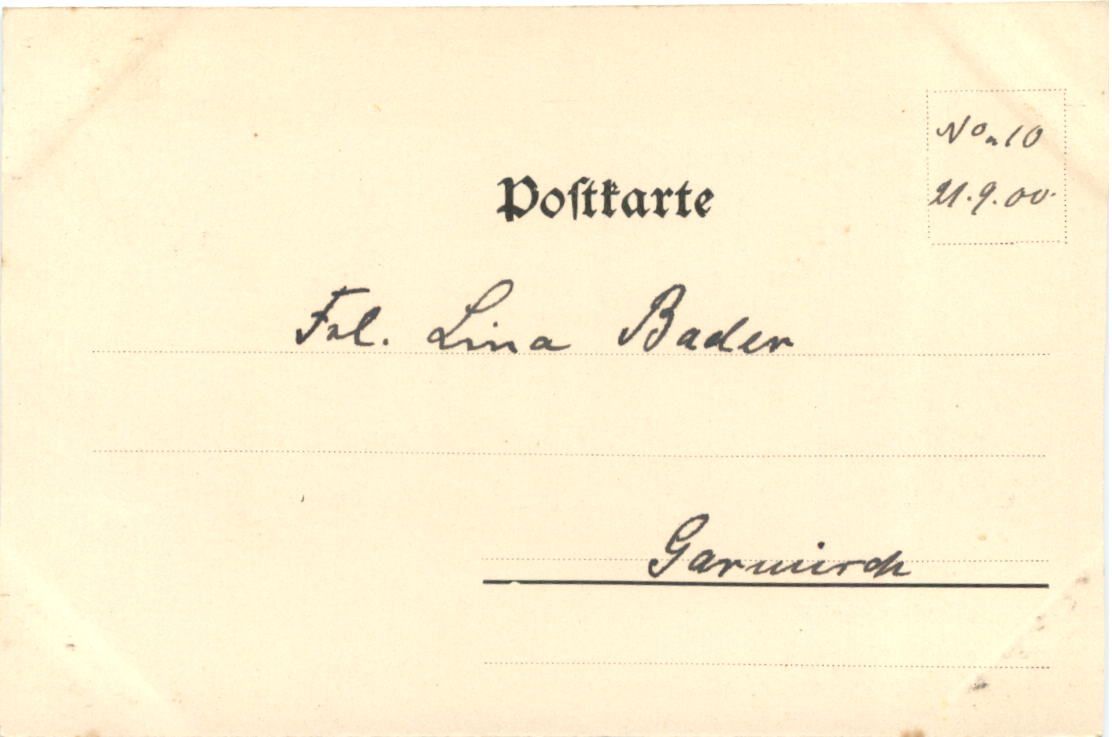 No. 10
21.9.00.
Postkarte
Frl. Lina Bader
Garmisch